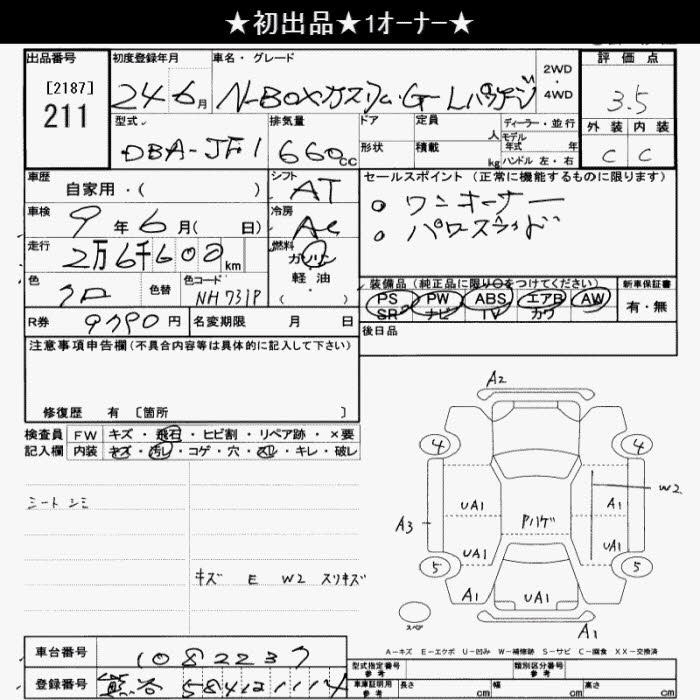 ★初出品★1オーナー★
出品番号 初度登録年月 車名・グレード 評価点
[2187]
211 24 6月 N-BOXカスタム・G Lパッケージ 2WD・4WD 3.5
型式 排気量 ドア 定員 人 ディーラー・並行 外装 内装
DBA-JF1 660cc 形状 積載 kg モデル年式 年 ハンドル 左・右 C C
車歴 シフト セールスポイント (正常に機能するものに限ります)
自家用・( ) AT ワンオーナー
車検 9年6月( 日) 冷房 AC パワースライド
走行 2万6千600km 燃料 ガソリン
軽油
( )
色 クロ 色替 色コード NH731P
装備品(純正品に限り○をつけてください) 新車保証書
PS PW ABS エアB AW 有・無
SR ナビ TV カワ
R券 9790円 名変期限 月 日 後日品
注意事項申告欄(不具合内容等は具体的に記入して下さい)
修復歴 有 〔箇所 〕
検査員 FW キズ・飛石・ヒビ割・リペア跡・×要
記入欄 内装 キズ・汚レ・コゲ・穴・スレ・キレ・破レ
シートシミ
キズ E W2 スリキズ
A2
4 4
W2
UA1 A1
A3 Pハゲ
UA1 UA1
5 5
A1 UA1
スペア
A1
A-キズ E-エクボ U-凹み W-補修跡 S-サビ C-腐食 XX-交換済
車台番号 1082237
登録番号 熊谷 584
型式指定番号 参考 類別区分番号 参考
車庫証明用 参考 長さ cm 幅 cm 高さ cm